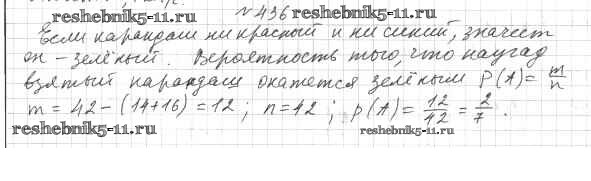 №436
reshebnik5-11.ru
reshebnik5-11.ru
Если карандаш ни красный и ни синий, значет
он – зелёный. Вероятность того, что наугад
взятый карандаш окажется зелёным P(A) = m/n
m = 42 – (14+16) = 12; n = 42; p(A) = 12/42 = 2/7.
reshebnik5-11.ru
reshebnik5-11.ru